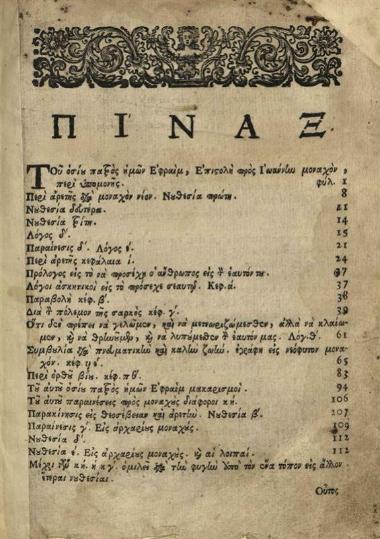 ΠΙΝΑΞ
ΤΟῦ ὁσίȣ πατρὸς ἡμῶν Εφραὶμ, Επιστολὴ πρὸς Ιωαννίω μοναχὸν,
περὶ ὑπομονῆς. φύλ. 1
Περὶ ἀρετῆς πρὸς μοναχὸν νέον. Νȣθεσία πρώτη. 8
Νȣθεσία δευτέρα. 11
Νȣθεσία τρίτη. 14
Λόγος δ΄. 15
Παραίνεσις δ΄. Λόγος έ. 21
Περὶ ἀρετῆς κεφάλαια ί. 24
Πρόλογος εἰς τὸ νὰ προσέχῃ ὁ ἄνθρωπος εἰς τ ἑαυτόν τȣ. 37
Λόγοι ἀσκητικοὶ εἰς τὸ πρόσεχε σεαυτῷ. Κεφ. ά. 37
Παραβολὴ κεφ. β΄. 38
Διὰ τ πόλεμον τῆς σαρκὸς κεφ. γ΄. 39
Οτι δὲν πρέπει νὰ γελῶμεν, καὶ νὰ μετεωριζώμεσθεν, ἀλλὰ νὰ κλαίω-
μεν, κ νὰ θρίωῶμεν, κ νὰ λυπȣμεσθεν τ ἑαυτόν μας. Λογ. θ΄. 61
Συμβȣλία πρὸς πνευματικίω καὶ καλίω ζωίω. ἐγράφη εἰς νεόφυτον μονα-
χόν. κεφ. 65
Περὶ ὀρθȣ βίȣ. κεφ. 83
Τȣ αὐτȣ ὁσίȣ πατρὸς ἡμῶν Εφραὶμ μακαρισμοί. 94
Τȣ αὐτȣ παραινέσεις πρὸς μοναχȣς διάφοροι κή. 106
Παρακίνησις εἰς θεοσέβειαν καὶ ἀρετίω. Νȣθεσία β΄. 107
Παραίνεσις γ΄. Εἰς ἀρχαρίȣς μοναχȣς. 109
Νȣθεσία δ΄. 112
Νȣθεσία έ. Εἰς ἀρχαρίȣς μοναχȣς. κ αἱ λοιπαί. 112
Μέχρι κή. ὁμιλεῖ τίω φυγίω ἀπὸ τὸν ἕνα τόπον εἰς ἄλλον
ἕτεραι νȣθεσίαι.
Οὗτος